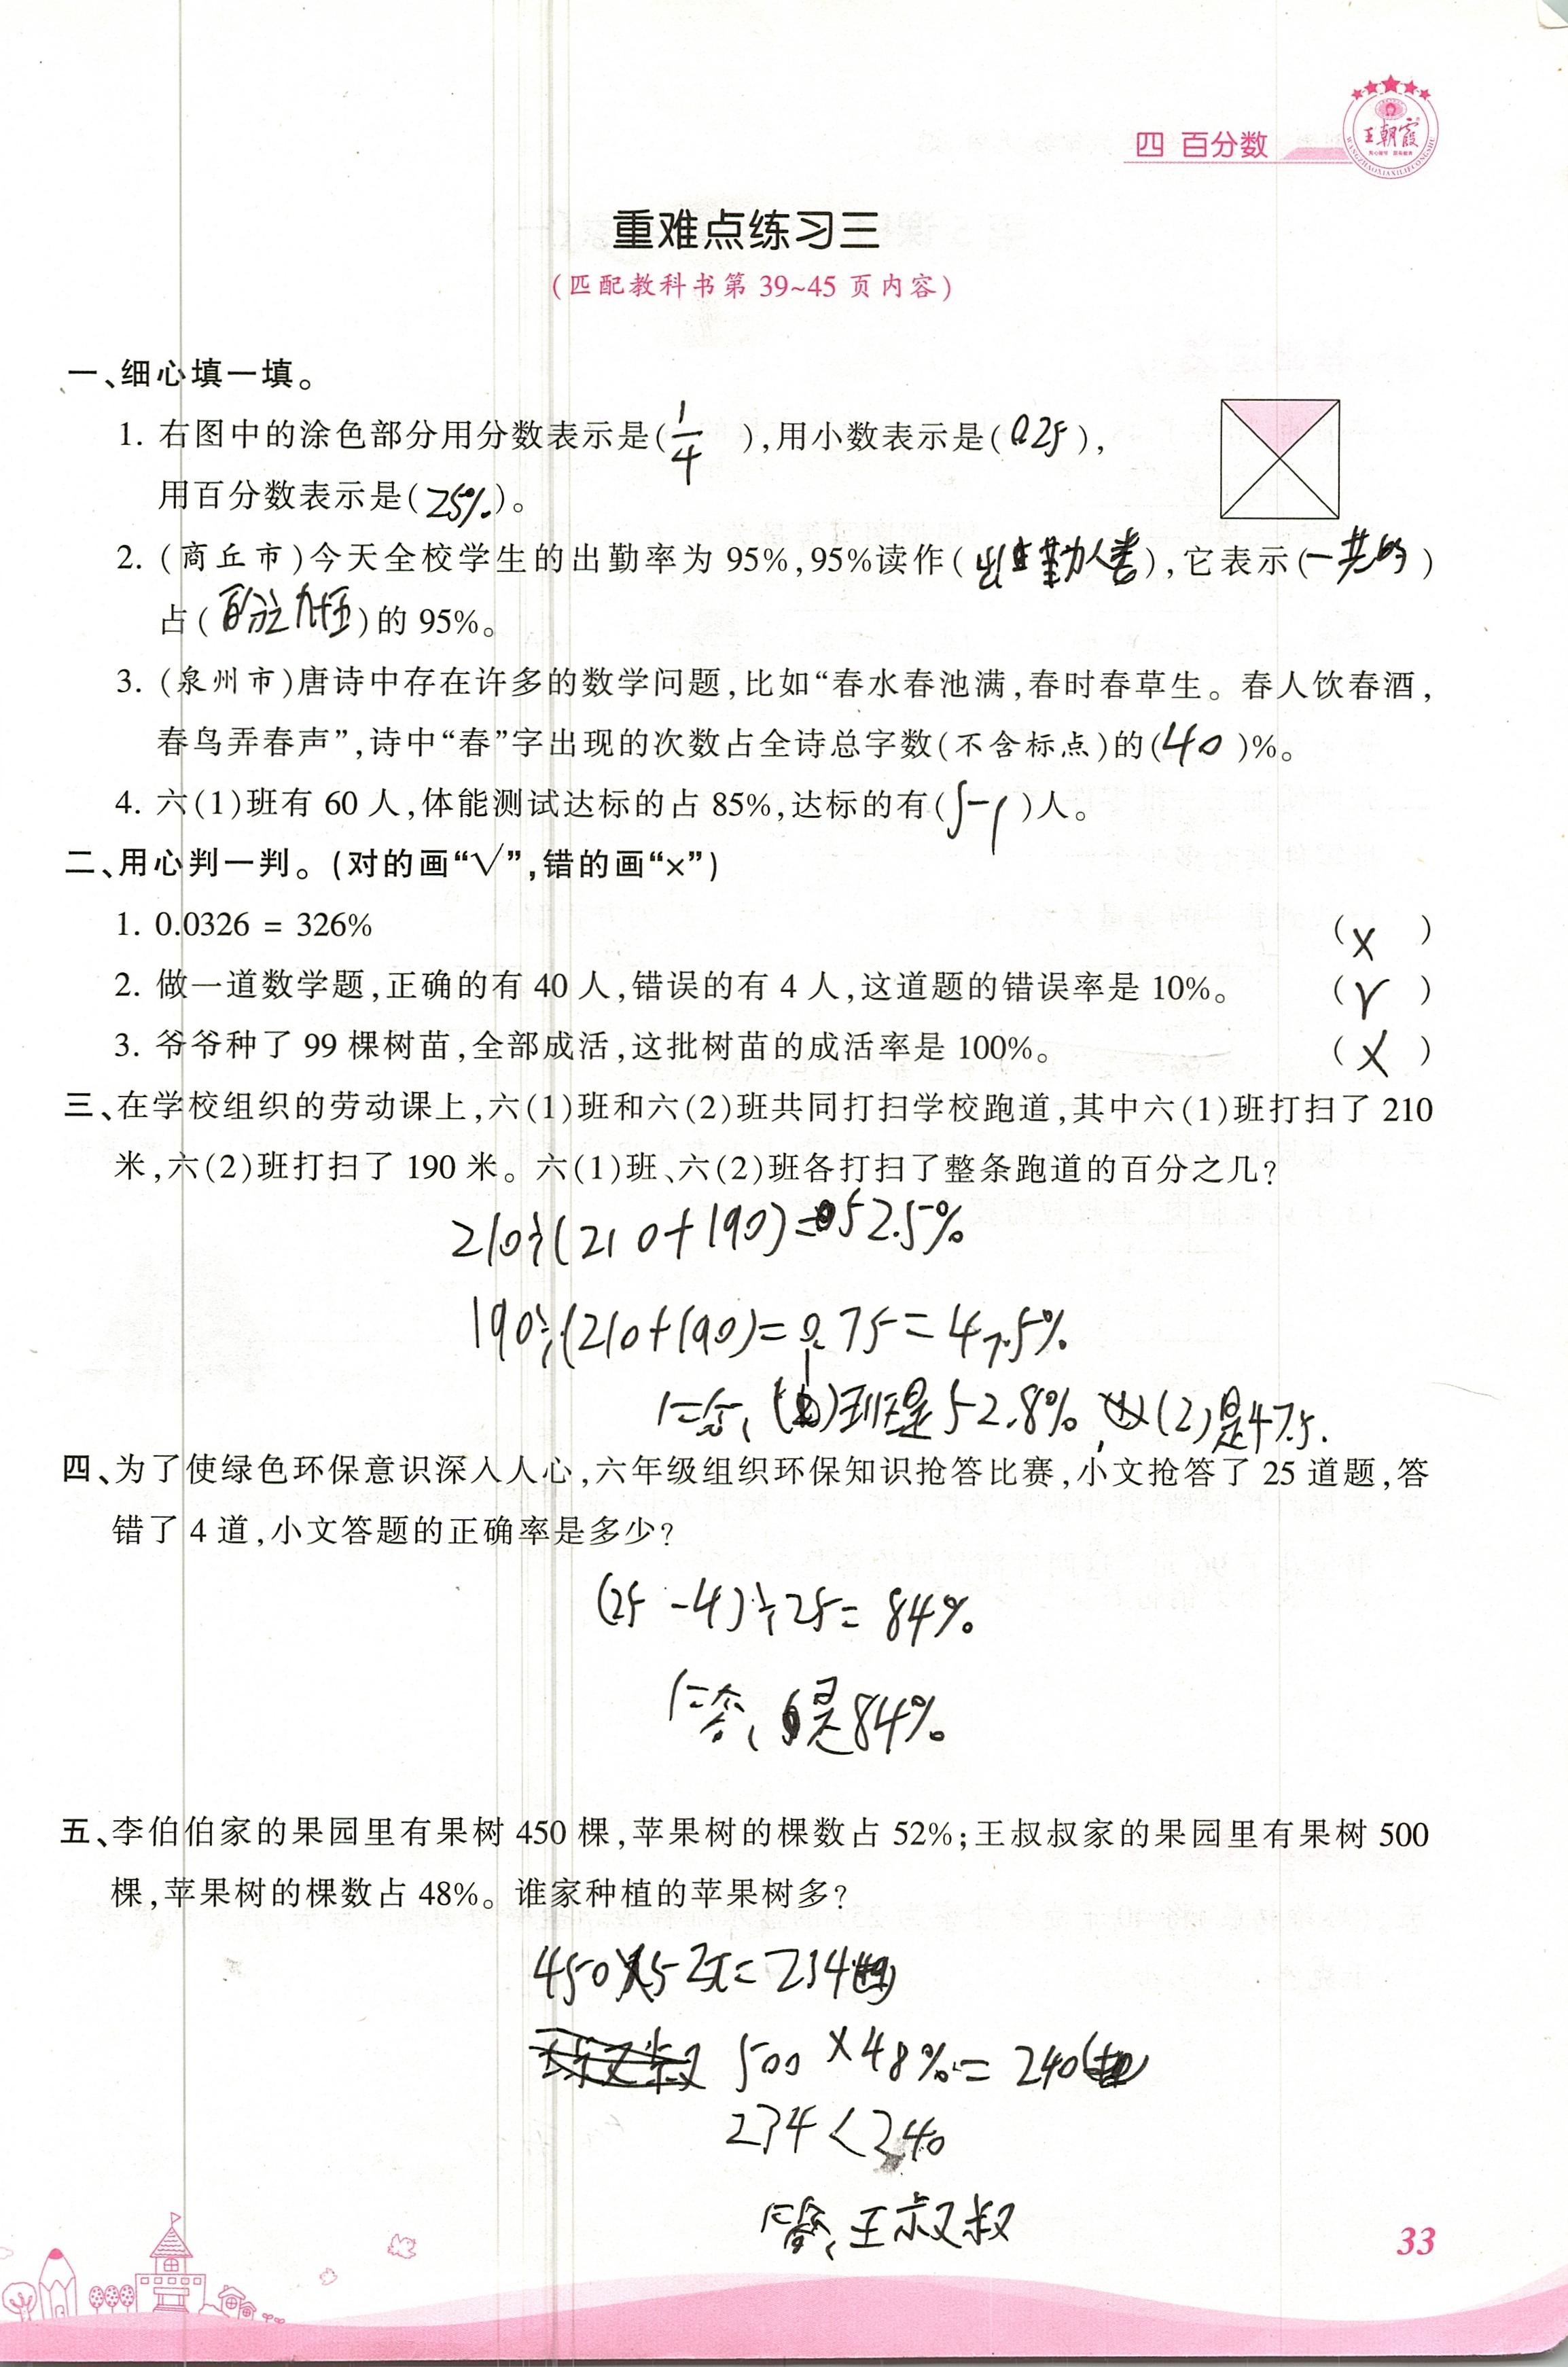 四 百分数
王朝霞
重难点练习三
(匹配教科书第 39~45 页内容)
一、细心填一填。
1. 右图中的涂色部分用分数表示是(1/4),用小数表示是(0.25),
用百分数表示是(25%)。
2. (商丘市)今天全校学生的出勤率为 95%,95%读作(出勤人),它表示(一共的)
占(百分之九十五)的 95%。
3. (泉州市)唐诗中存在许多的数学问题,比如“春水春池满,春时春草生。春人饮春酒,
春鸟弄春声”,诗中“春”字出现的次数占全诗总字数(不含标点)的(40)%。
4. 六(1)班有 60 人,体能测试达标的占 85%,达标的有(51)人。
二、用心判一判。(对的画“√”,错的画“×”)
1. 0.0326 = 326% (×)
2. 做一道数学题,正确的有 40 人,错误的有 4 人,这道题的错误率是 10%。 (√)
3. 爷爷种了 99 棵树苗,全部成活,这批树苗的成活率是 100%。 (×)
三、在学校组织的劳动课上,六(1)班和六(2)班共同打扫学校跑道,其中六(1)班打扫了 210
米,六(2)班打扫了 190 米。六(1)班、六(2)班各打扫了整条跑道的百分之几?
210÷(210+190)=52.5%
190÷(210+190)=0.75=47.5%
答、(1)班是52.8%,(2)是47.5.
四、为了使绿色环保意识深入人心,六年级组织环保知识抢答比赛,小文抢答了 25 道题,答
错了 4 道,小文答题的正确率是多少?
(25-4)÷25=84%
答、是84%
五、李伯伯家的果园里有果树 450 棵,苹果树的棵数占 52%;王叔叔家的果园里有果树 500
棵,苹果树的棵数占 48%。谁家种植的苹果树多?
450×52%=234
500×48%=240
234<240
答、王叔叔
33